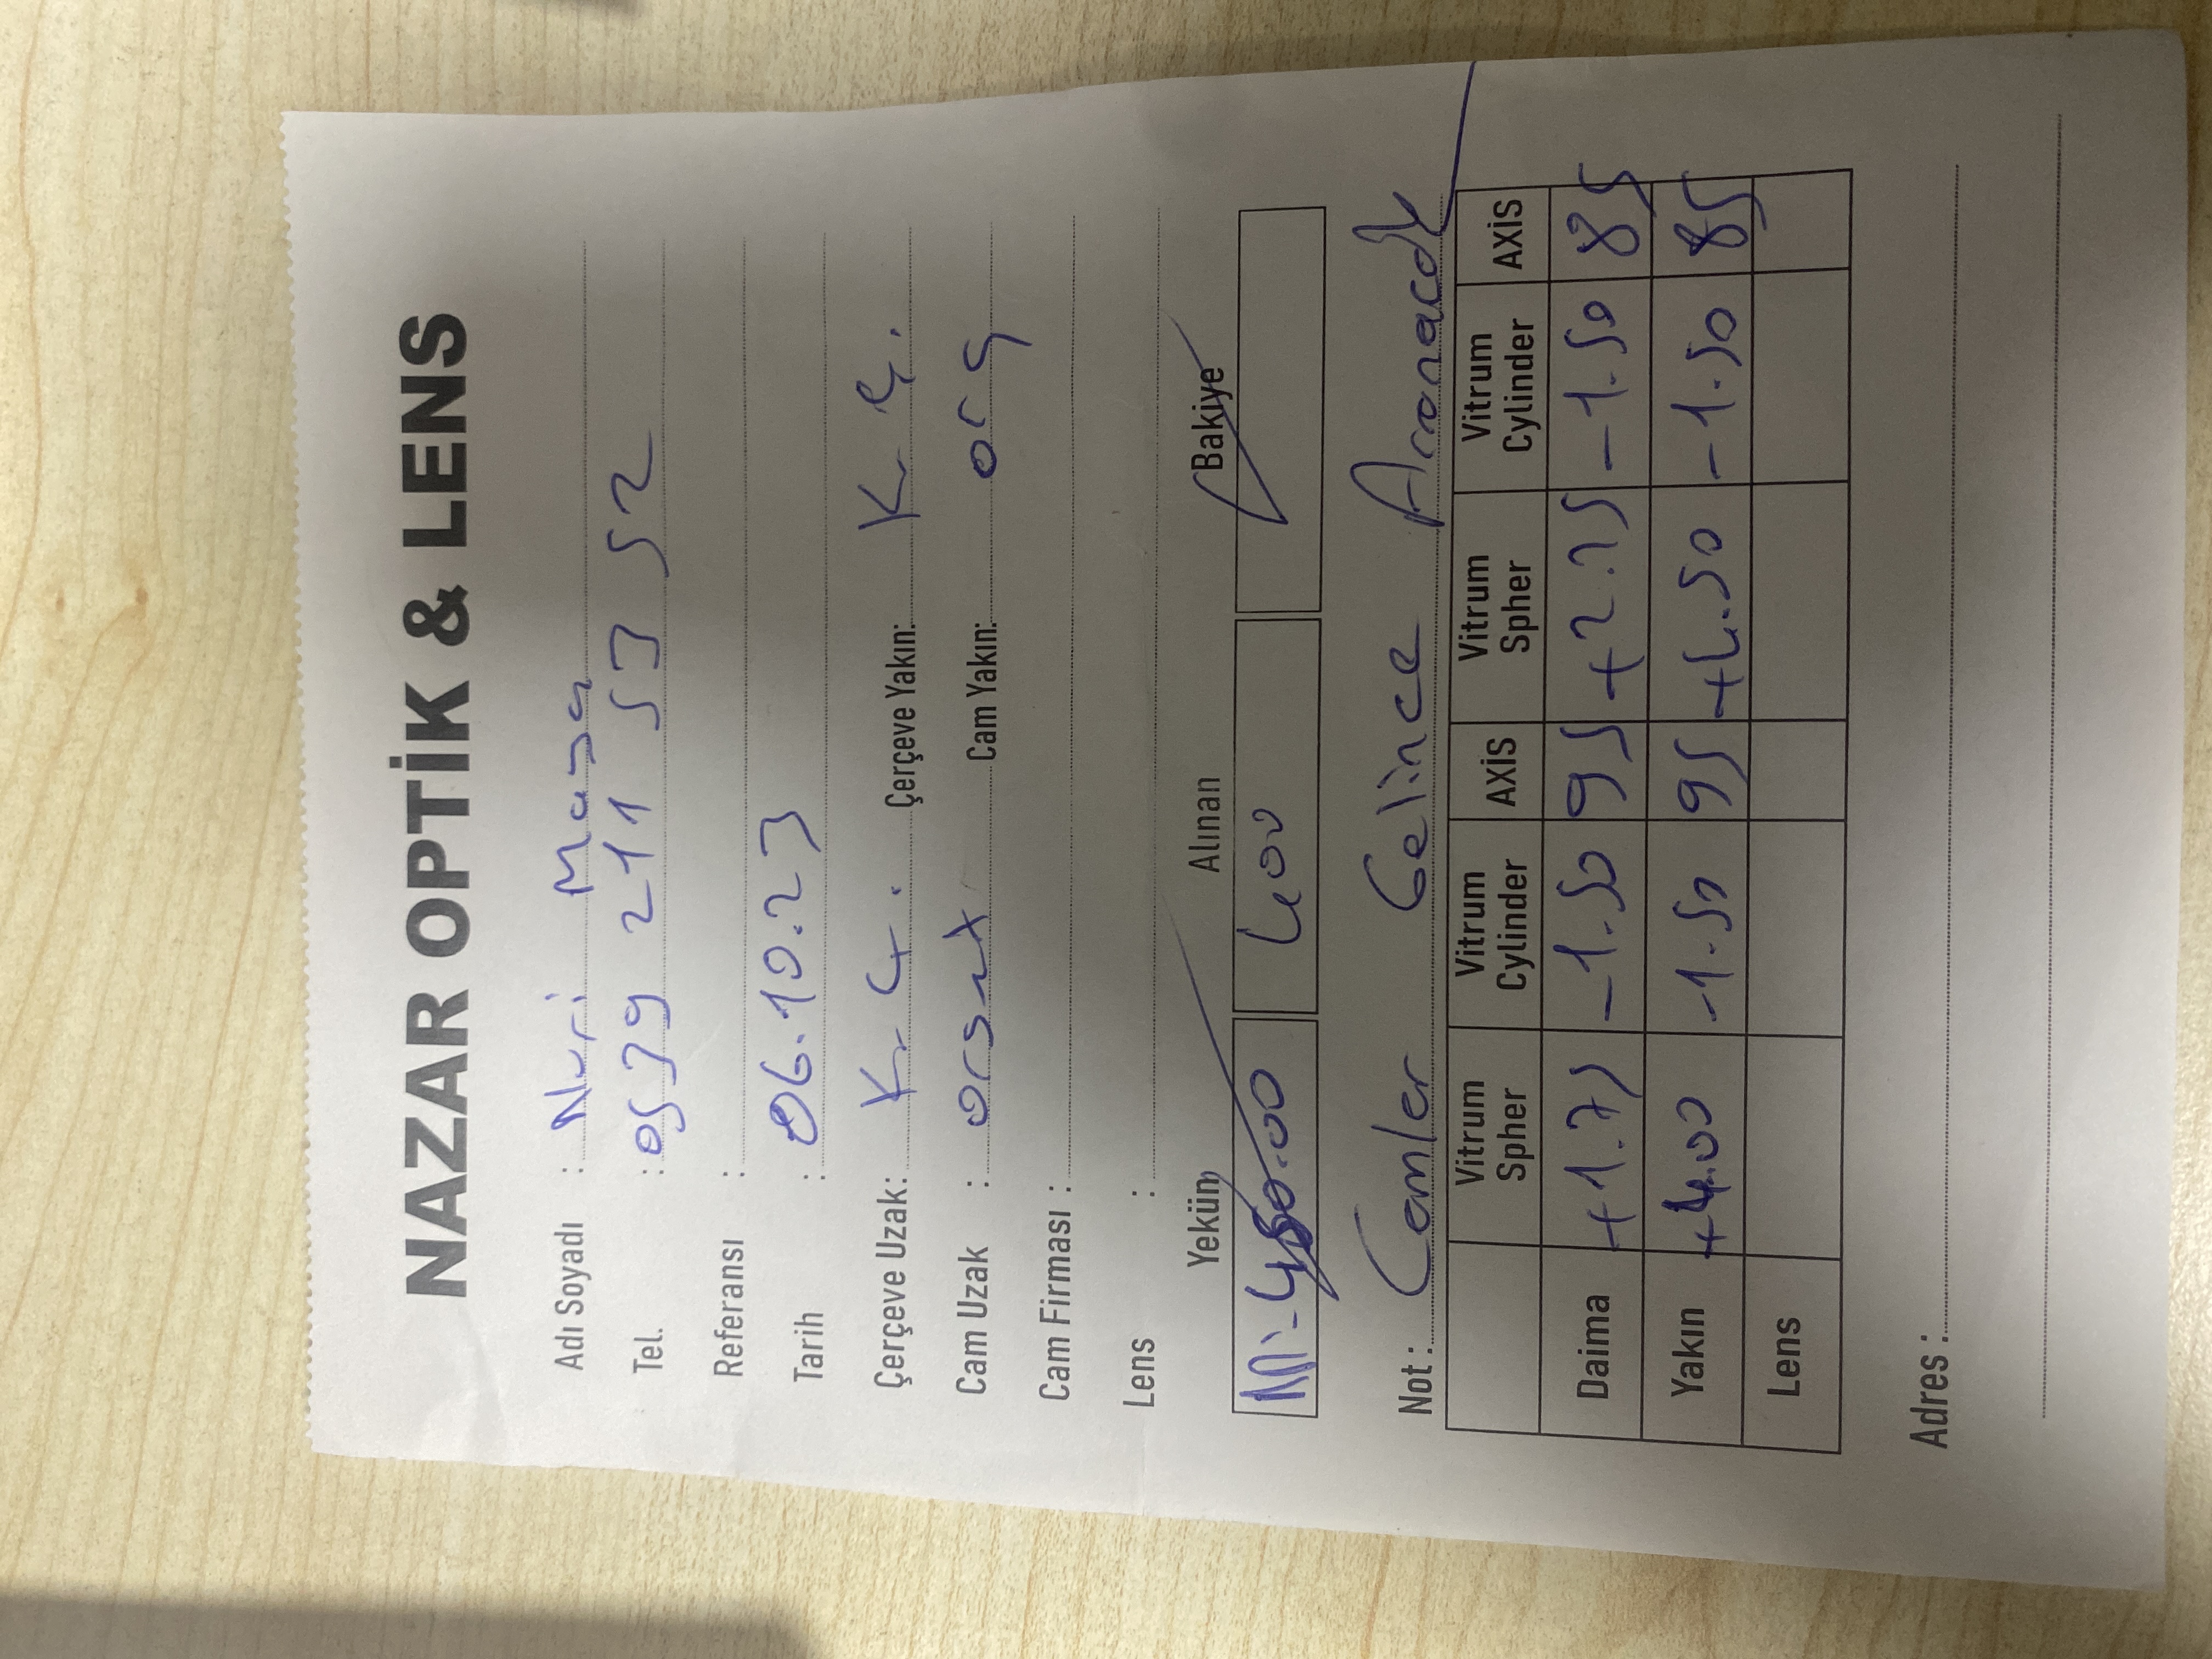 NAZAR OPTİK & LENS
Adı Soyadı : Nuri Maşa
Tel. : 0539 211 53 52
Referansı :
Tarih : 06.10.23
Çerçeve Uzak: K. Ç. Çerçeve Yakın: K. Ç.
Cam Uzak : Cam Yakın: org
Cam Firması :
Lens :
Yekün Alınan Bakiye
400
Not: Camler Gelince Aranacak
Vitrum Spher Vitrum Cylinder AXİS Vitrum Spher Vitrum Cylinder AXİS
Daima +1.75 -1.50 95 +2.25 -1.50 85
Yakın +4.00 -1.50 95 +4.50 -1.50 85
Lens
Adres :